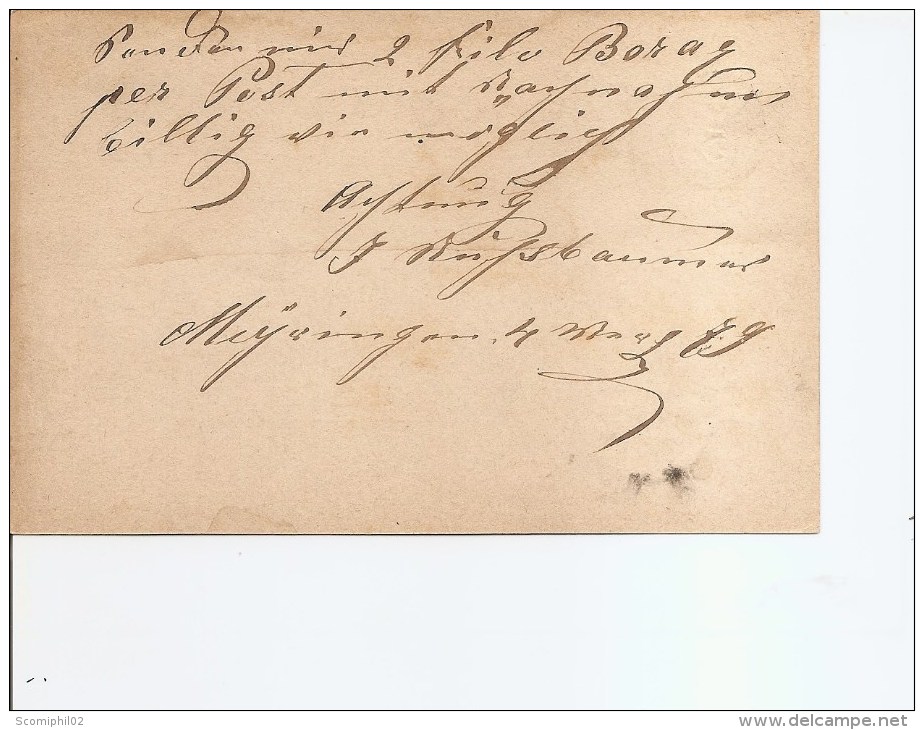 Senden mir 2 Kilo Borax
per Post mit Nachnahme
billig wie möglich
Achtung
J Nussbaumer
Meÿringen, 4 März 79
Scomiphil02
www.delcampe.net